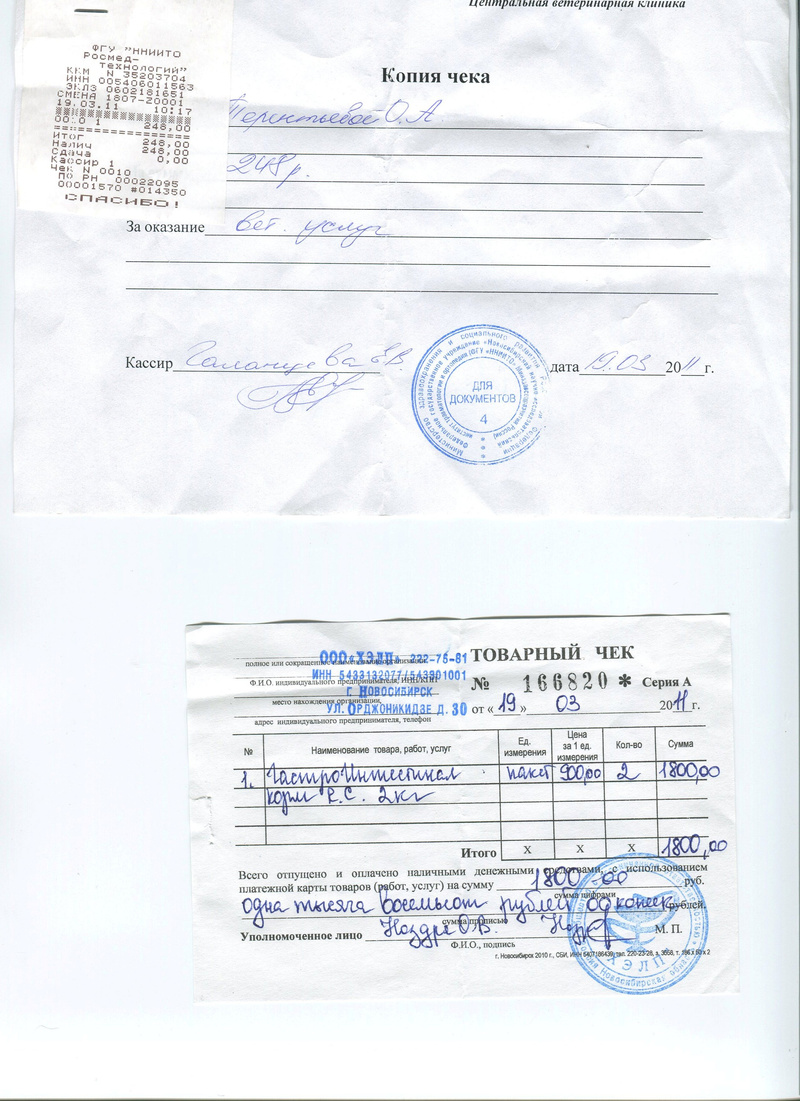 Центральная ветеринарная клиника
ФГУ "ННИИТО
Росмед-
технологий"
ККМ N 35203704
ИНН 005406011563
ЭКЛЗ 0602181651
СМЕНА 1807-20001
19.03.11 10:17
00:0 1 248,00
ИТОГ 248,00
Налич 248,00
Сдача 0,00
Кассир 1
Чек N 0010
ПО РН 00022095
00001570 #014350
СПАСИБО!
Копия чека
Терентьевой О.А
248 р.
За оказание вет. услуг
Кассир Галанцева Е.В. дата 19.03 2011 г.
Министерство здравоохранения и социального развития
Федеральное государственное учреждение «Новосибирский
ДЛЯ
ДОКУМЕНТОВ
4
ООО «ХЭЛП» 222-75-81
ИНН 5433132077/543301001
Г НОВОСИБИРСК
УЛ. ОРДЖОНИКИДЗЕ Д. 30
полное или сокращенное наименование организации
Ф.И.О. индивидуального предпринимателя, ИНН/КПП
место нахождения организации,
адрес индивидуального предпринимателя, телефон
ТОВАРНЫЙ ЧЕК
№ 166820 * Серия А
от « 19 » 03 2011 г.
№ Наименование товара, работ, услуг Ед. измерения Цена за 1 ед. измерения Кол-во Сумма
1. ГастроИнтестинал пакет 900,00 2 1800,00
корм R.C. 2кг
Итого X X X 1800,00
Всего отпущено и оплачено наличными денежными средствами, с использованием
платежной карты товаров (работ, услуг) на сумму 1800,00 руб.
сумма цифрами
одна тысяча восемьсот рублей 00 копеек рублей.
сумма прописью
Уполномоченное лицо Ноздря О.В. М. П.
Ф.И.О., подпись
ХЭЛП